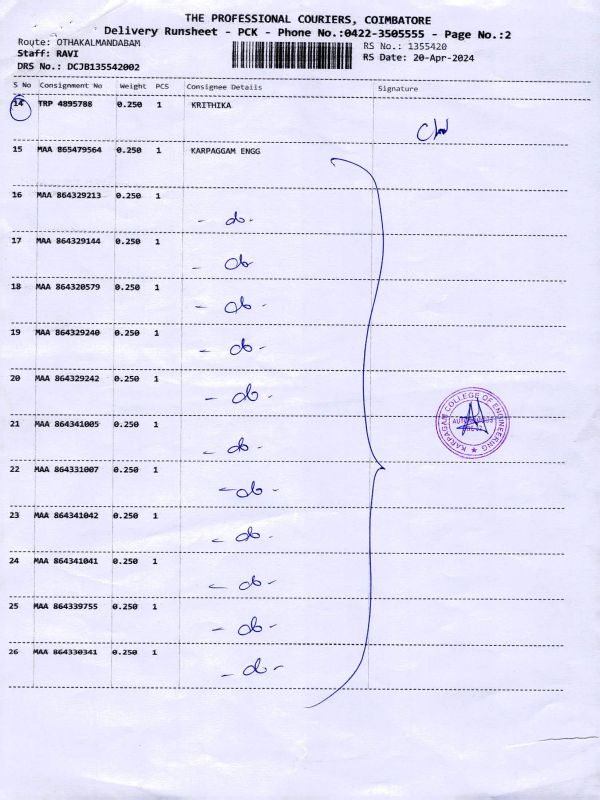 THE PROFESSIONAL COURIERS, COIMBATORE
Delivery Runsheet - PCK - Phone No.:0422-3505555 - Page No.:2
Route: OTHAKALMANDABAM
RS No.: 1355420
Staff: RAVI
RS Date: 20-Apr-2024
DRS No.: DCJB135542002
S No Consignment No Weight PCS Consignee Details Signature
14 TRP 4895788 0.250 1 KRITHIKA
15 MAA 865479564 0.250 1 KARPAGGAM ENGG
16 MAA 864329213 0.250 1
- do -
17 MAA 864329144 0.250 1
- do
18 MAA 864320579 0.250 1
- do -
19 MAA 864329240 0.250 1
- do -
20 MAA 864329242 0.250 1
- do -
21 MAA 864341005 0.250 1
- do -
22 MAA 864331007 0.250 1
- do -
23 MAA 864341042 0.250 1
- do -
24 MAA 864341041 0.250 1
- do -
25 MAA 864339755 0.250 1
- do -
26 MAA 864330341 0.250 1
- do -
KARPAGAM COLLEGE OF ENGINEERING